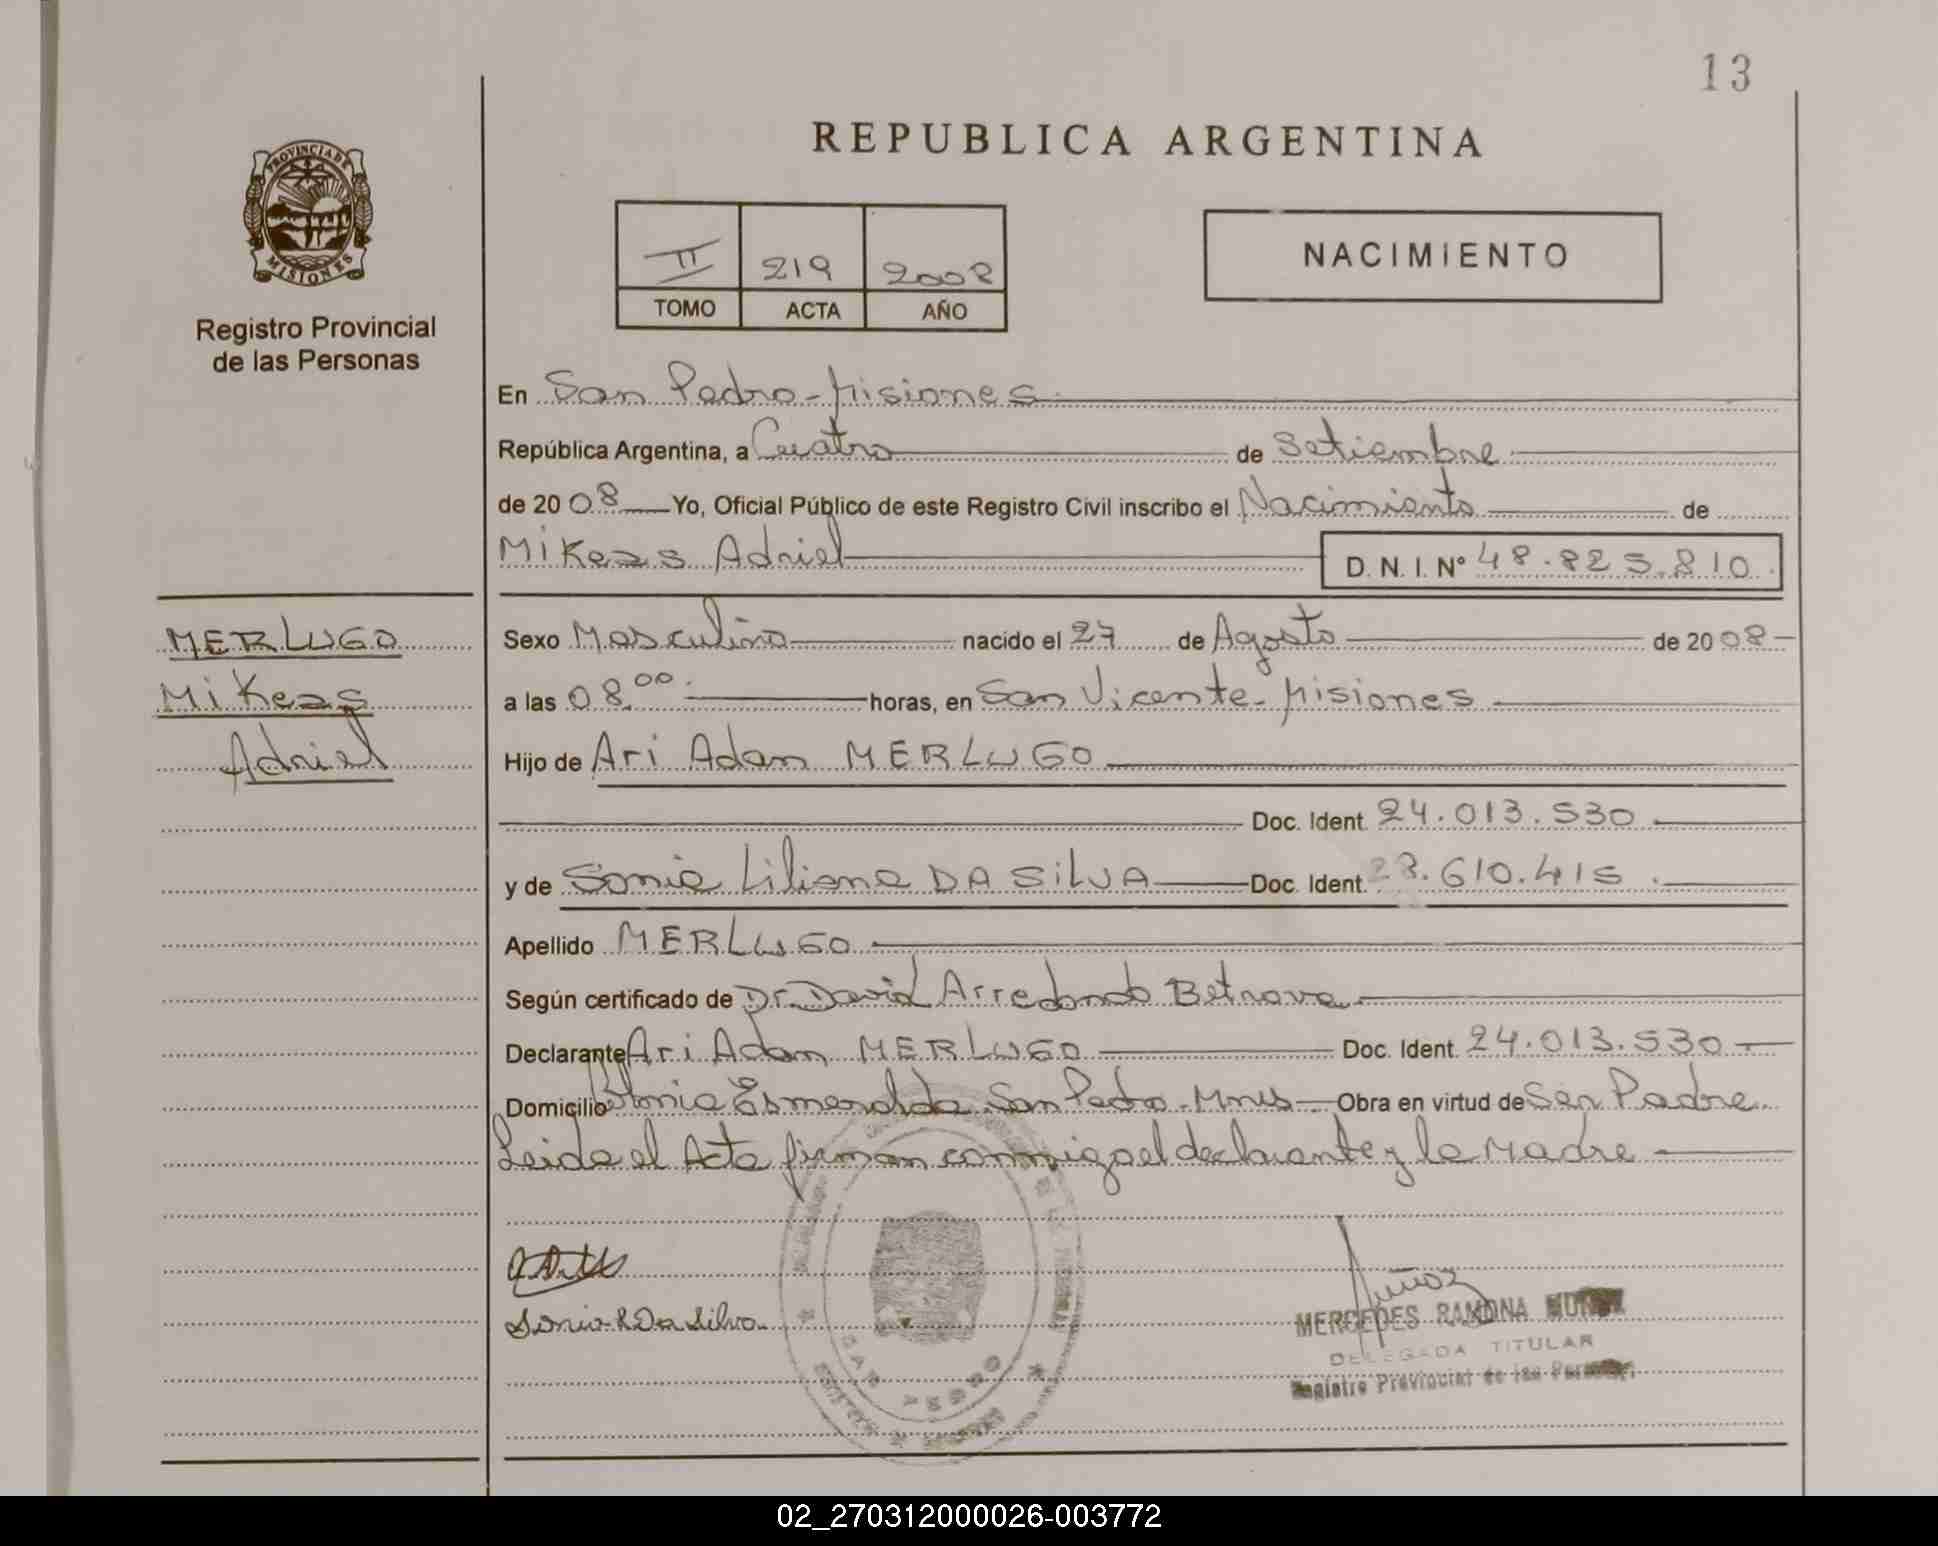 13
REPUBLICA ARGENTINA
PROVINCIA DE
MISIONES
Registro Provincial
de las Personas
II 219 2008
TOMO ACTA AÑO
NACIMIENTO
En San Pedro - Misiones
República Argentina, a Cuatro de Setiembre
de 2008 Yo, Oficial Público de este Registro Civil inscribo el Nacimiento de
Mikeas Adriel D. N. I. Nº 48.825.810.
MERLUGO
Mikeas
Adriel
Sexo Masculino nacido el 27 de Agosto de 2008
a las 08.00. horas, en San Vicente - Misiones
Hijo de Ari Adam MERLUGO
Doc. Ident. 24.013.530
y de Sonia Liliana DA SiLVA Doc. Ident. 28.610.415.
Apellido MERLUGO
Según certificado de Dr. David Arredondo Betnova
Declarante Ari Adam MERLUGO Doc. Ident. 24.013.530
Domicilio Colonia Esmeralda San Pedro - Mnes Obra en virtud de Ser Padre
Leida el Acta firman conmigo el declarante y la Madre
Sonia L Da Silva
Muñoz
MERCEDES RAMONA MUÑOZ
DELEGADA TITULAR
Registro Provincial de las Personas
SAN PEDRO
02_270312000026-003772